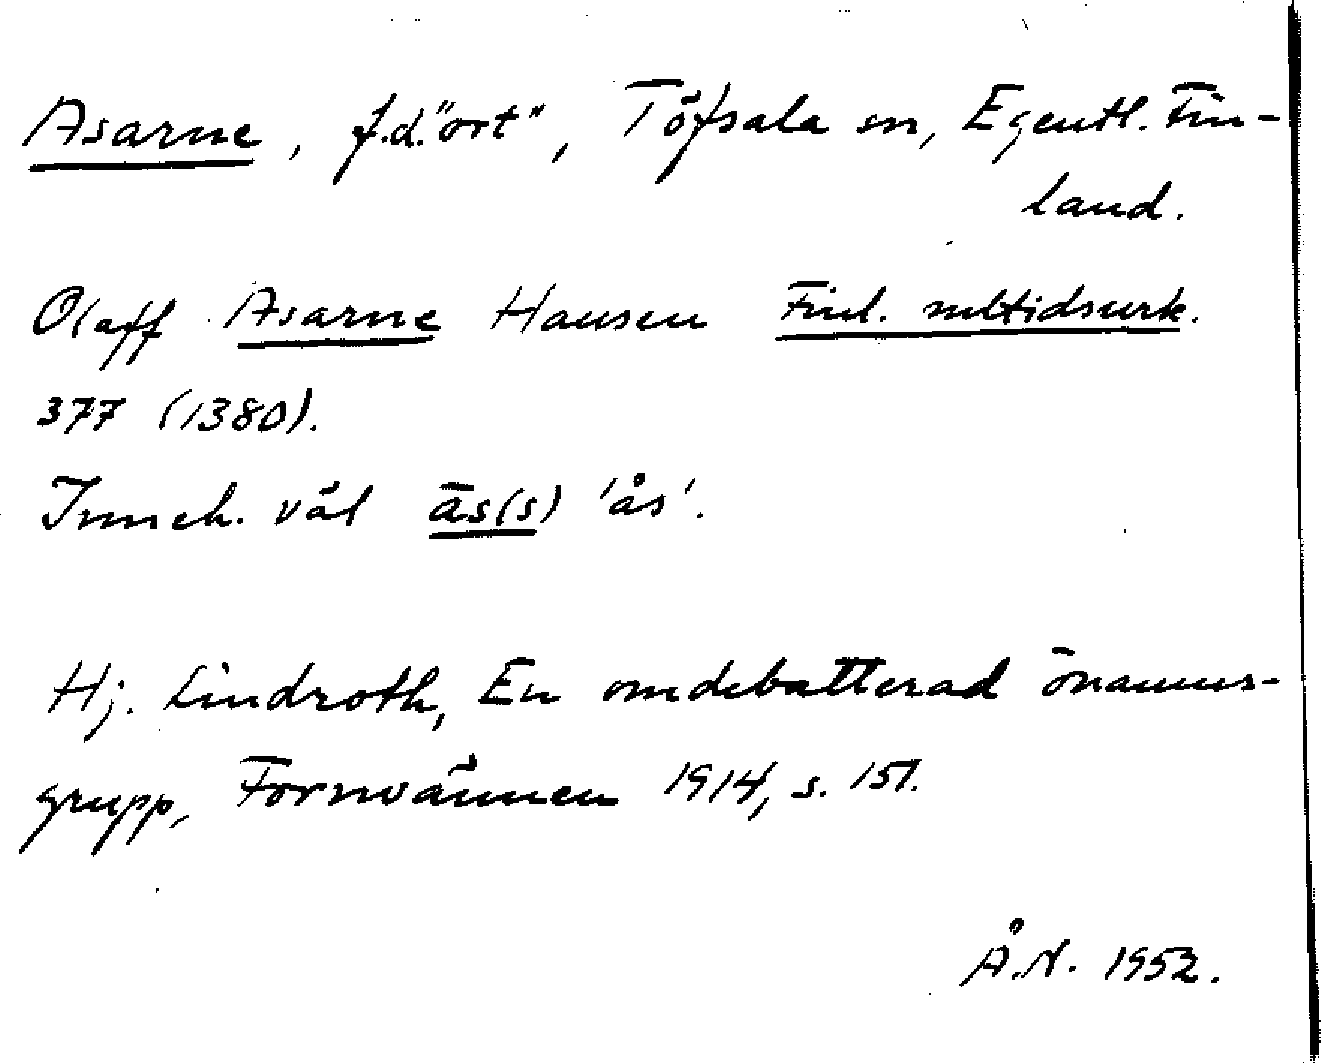 Asarne, f.d. "ort", Töfsala sn, Egentl. Fin-
land.
Olaff Asarne Hausen Finl. mltidsurk.
377 (1380).
Inneh. väl ās(s) 'ås'.
Hj. Lindroth, En omdebatterad önamns-
grupp, Fornvännen 1914, s. 151.
Å.N. 1952.